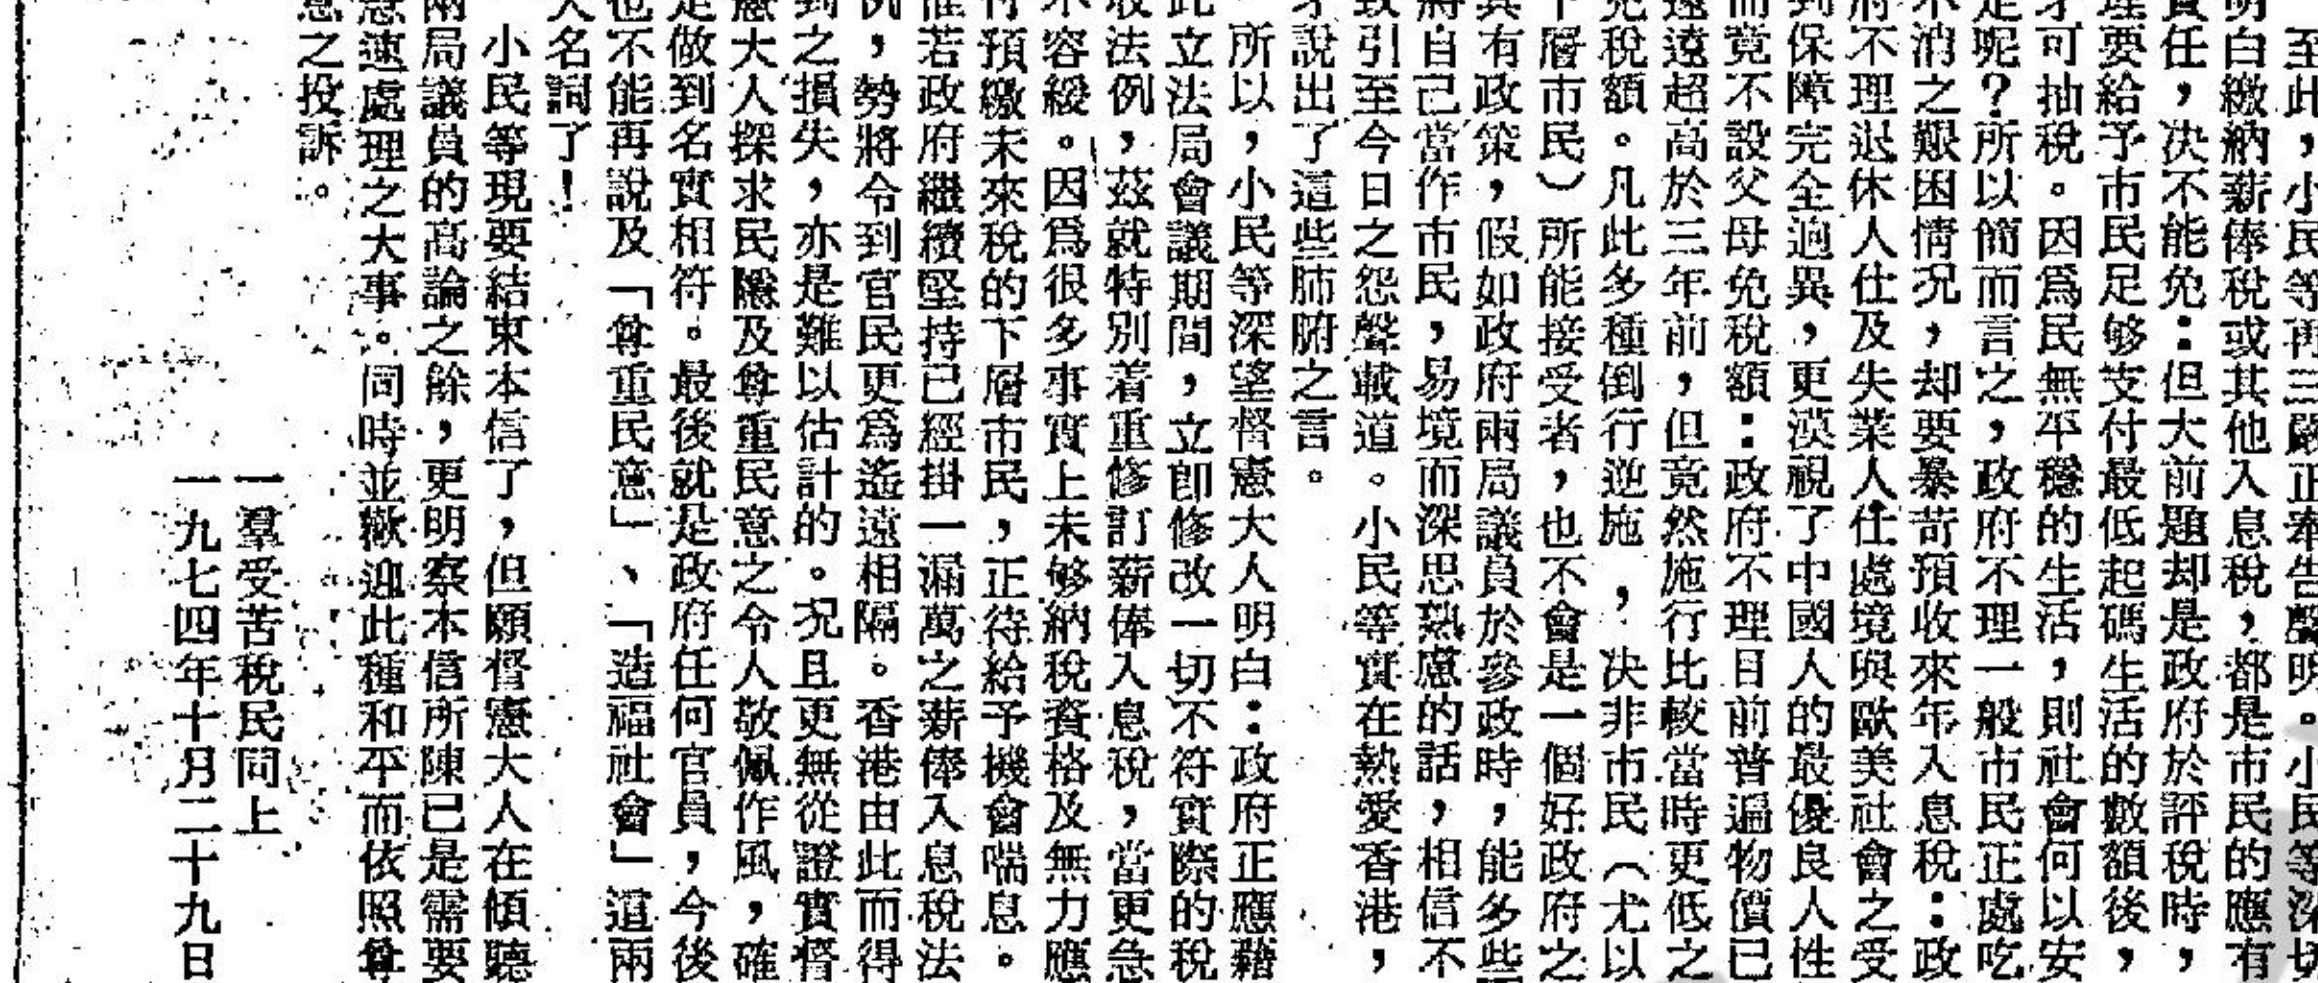 至此，小民等再三嚴正奉告聲明。小民等深切
明白繳納薪俸稅或其他入息稅，都是市民的應有
責任，決不能免：但大前題却是政府於評稅時，
理要給予市民足够支付最低起碼生活的數額後，
才可抽稅。因爲民無平穩的生活，則社會何以安
定呢？所以簡而言之，政府不理一般市民正處吃
不消之艱困情況，却要暴苛預收來年入息稅：政
府不理退休人仕及失業人仕處境與歐美社會之受
到保障完全逈異，更漠視了中國人的最優良人性
而竟不設父母免稅額：政府不理目前普遍物價已
遠遠超高於三年前，但竟然施行比較當時更低之
免稅額。凡此多種倒行逆施，决非市民（尤以
下層市民）所能接受者，也不會是一個好政府之
具有政策，假如政府兩局議員於參政時，能多些
將自己當作市民，易境而深思熟慮的話，相信不
致引至今日之怨聲載道。小民等實在熱愛香港，
才說出了這些肺腑之言。
所以，小民等深望督憲大人明白：政府正應藉
此立法局會議期間，立卽修改一切不符實際的稅
收法例，茲就特別着重修訂薪俸入息稅，當更急
不容緩。因爲很多事實上未够納稅資格及無力應
付預繳未來稅的下層市民，正待給予機會喘息。
惟若政府繼續堅持已經掛一漏萬之薪俸入息稅法
例，勢將令到官民更爲遙遠相隔。香港由此而得
到之損失，亦是難以估計的。况且更無從證實督
憲大人探求民隱及尊重民意之令人敬佩作風，確
是做到名實相符。最後就是政府任何官員，今後
也不能再說及「尊重民意」、「造福社會」這兩
大名詞了！
小民等現要結束本信了，但願督憲大人在傾聽
兩局議員的高論之餘，更明察本信所陳已是需要
急速處理之大事。同時並歡迎此種和平而依照尊
意之投訴。
一羣受苦稅民同上
一九七四年十月二十九日